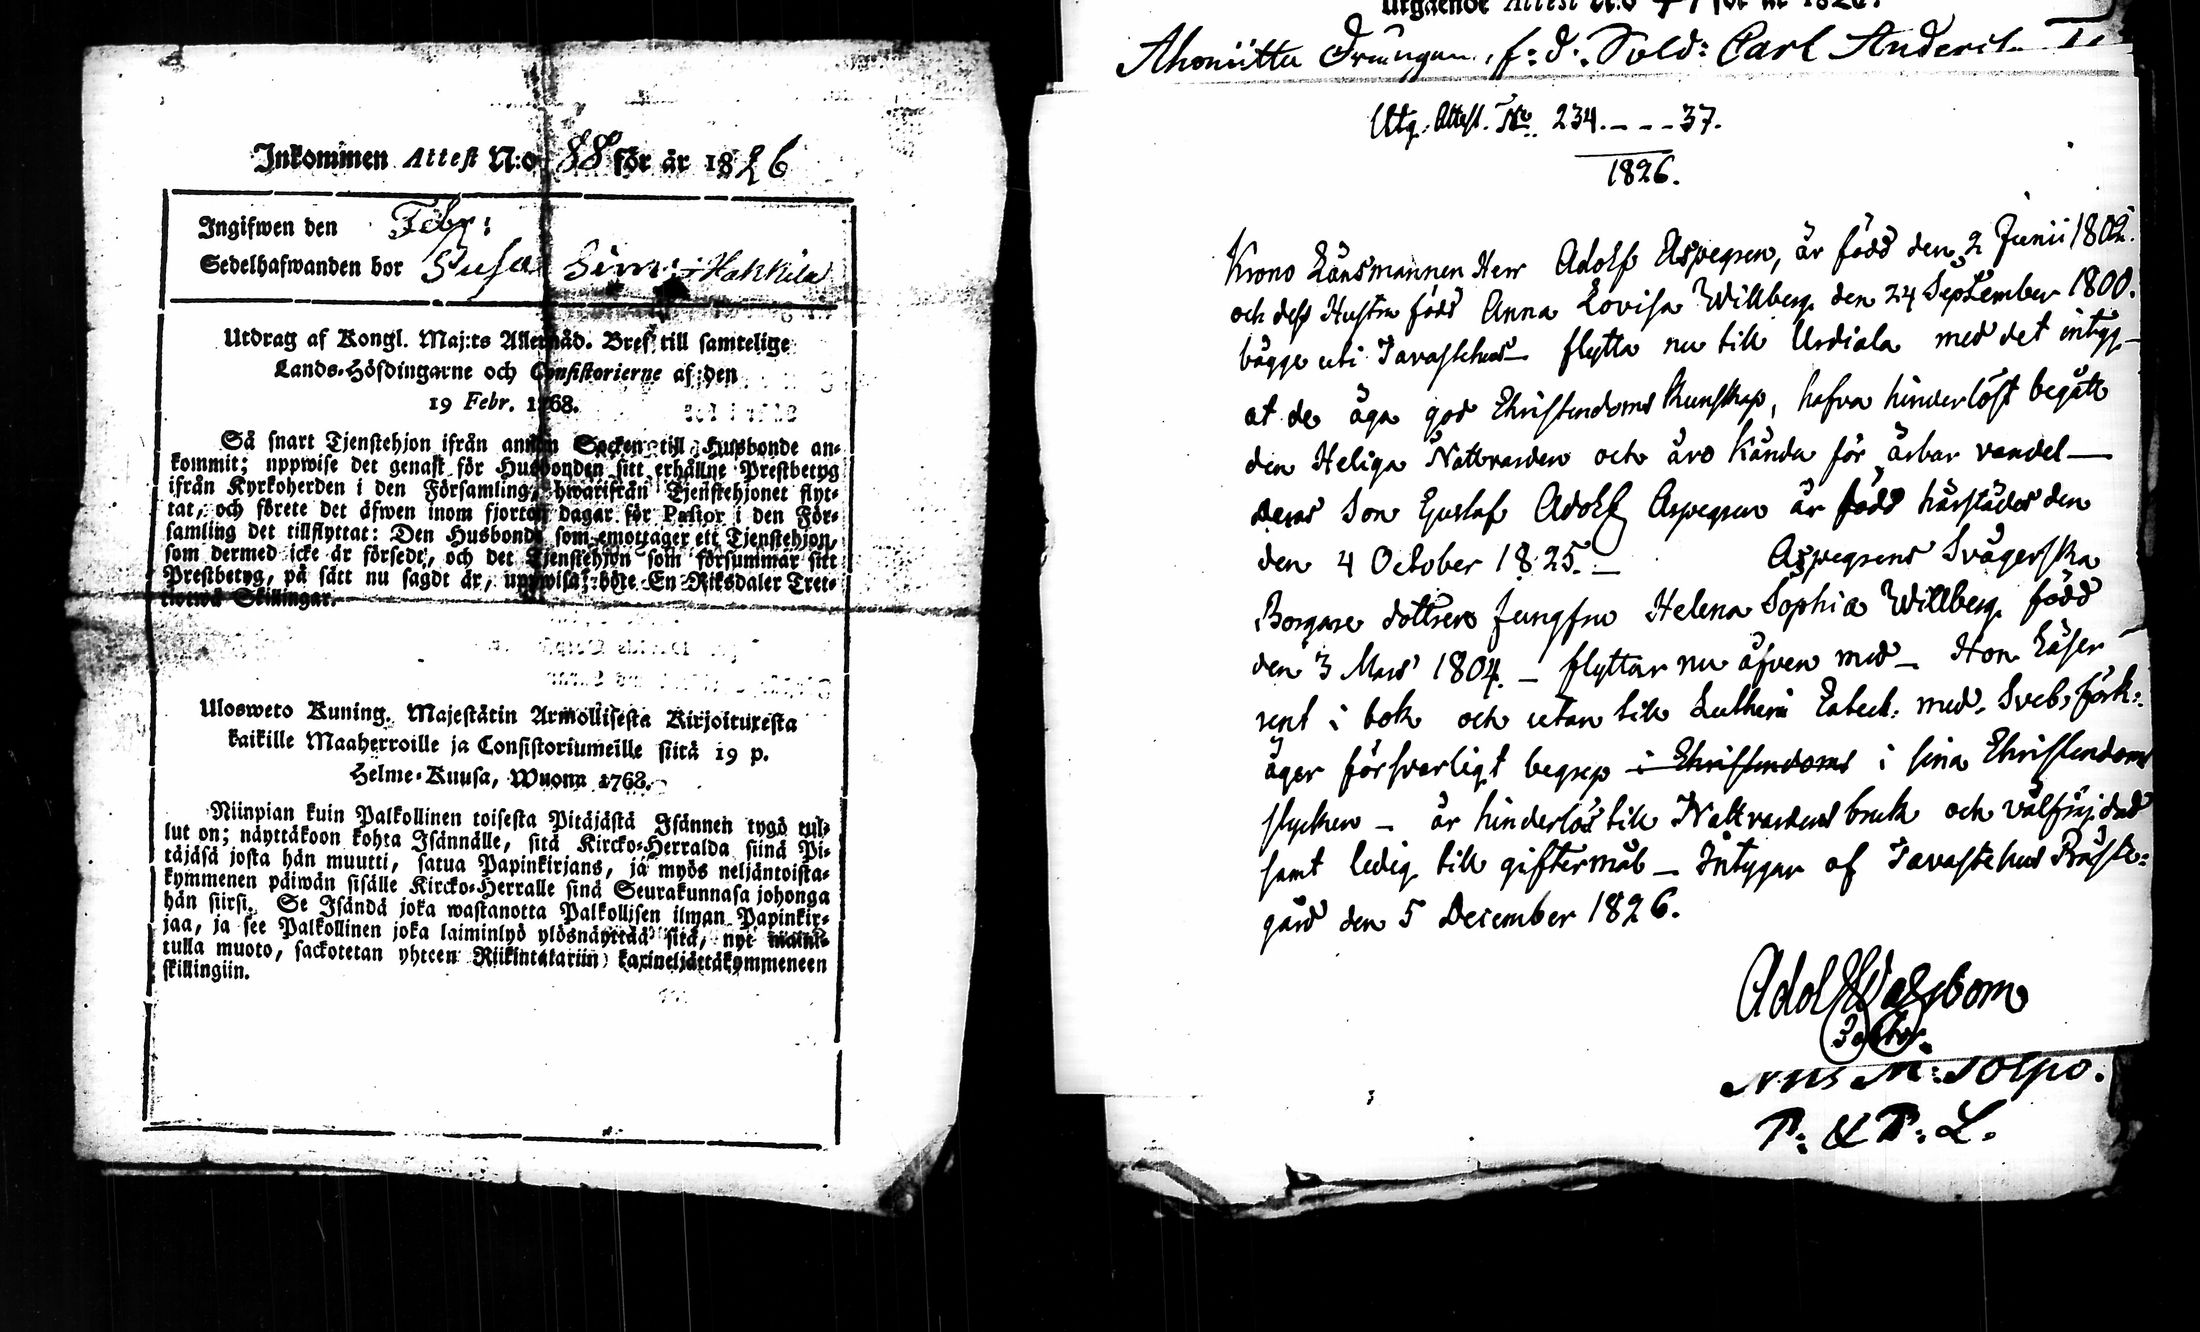 Inkommen Attest N:o 88 för år 1826
Ingifwen den Febr:
Sedelhafwanden bor Simi Hakkila
Utdrag af Kongl. Maj:ts Allernåd. Bref till samtelige
Lands-Höfdingarne och Consistorierne af den
19 Febr. 1768.
Så snart Tjenstehjon ifrån annan Socken till Husbonde an-
kommit; uppwise det genast för Husbonden sitt erhållne Prestbetyg
ifrån Kyrkoherden i den Församling, hwarifrån Tjenstehjonet flyt-
tat, och förete det äfwen inom fjorton dagar för Pastor i den För-
samling det tillflyttat: Den Husbonde som emottager ett Tjenstehjon,
som dermed icke är försedt, och det Tjenstehjon som försummar sitt
Prestbetyg, på sätt nu sagdt är, uppwisa, böte En Riksdaler Tret-
tiotwå Skillingar.
Ulosweto Kuning. Majestätin Armollisesta Kirjoituxesta
kaikille Maaherroille ja Consistoriumeille siitä 19 p.
Helme-Kuusa, Wuonna 1768.
Niinpian kuin Palkollinen toisesta Pitäjästä Isännen tygö tul-
lut on; näyttäkoon kohta Isännälle, sitä Kircko-Herralda siinä Pi-
täjäsä josta hän muutti, satua Papinkirjans, ja myös neljäntoista-
kymmenen päiwän sisälle Kircko-Herralle sinä Seurakunnasa johonga
hän siirsi. Se Isändä joka wastanotta Palkollisen ilman Papinkir-
jaa, ja see Palkollinen joka laiminlyö ylösnäyttää sitä, nyt maini-
tulla muoto, sackotetan yhteen Riikintalariin kaxineljättäkymmeneen
skillingiin.
Utgående Attest N:o 41 för år 1826.
Ahoniitta Drängen, f: d. Sold: Carl Anders
Utg. Attest. No. 234. - - - 37.
1826.
Krono Länsmannen Herr Adolf Aspegren, är född den 2 Junii 1802.
och dess Hustru född Anna Lovisa Willberg den 24 September 1800.
bägge uti Tavastehus flytta nu till Urdiala med det intyg
at de äga god Christendoms kunskap, hafva hinderlöst begått
den Heliga Nattvarden och äro kända för ärbar vandel
deras Son Gustaf Adolf Aspegren är född härstädes den
den 4 October 1825. Aspegrens Svägerska
Borgare dottren Jungfru Helena Sophia Willberg född
den 3 Mars 1804. flyttar nu äfven med Hon Läser
rent i bok och utan till Lutheri Catech: med Sveb. förk:
äger försvarligt begrep i Christendoms i sina Christendoms
stycken är hinderlös till Nattvardens bruk och välfräjdad
samt ledig till giftermål Intygar af Tavastehus Präste-
gård den 5 December 1826.
Adolf Walbom
Nils M: Tolpo.
P: & P: L.